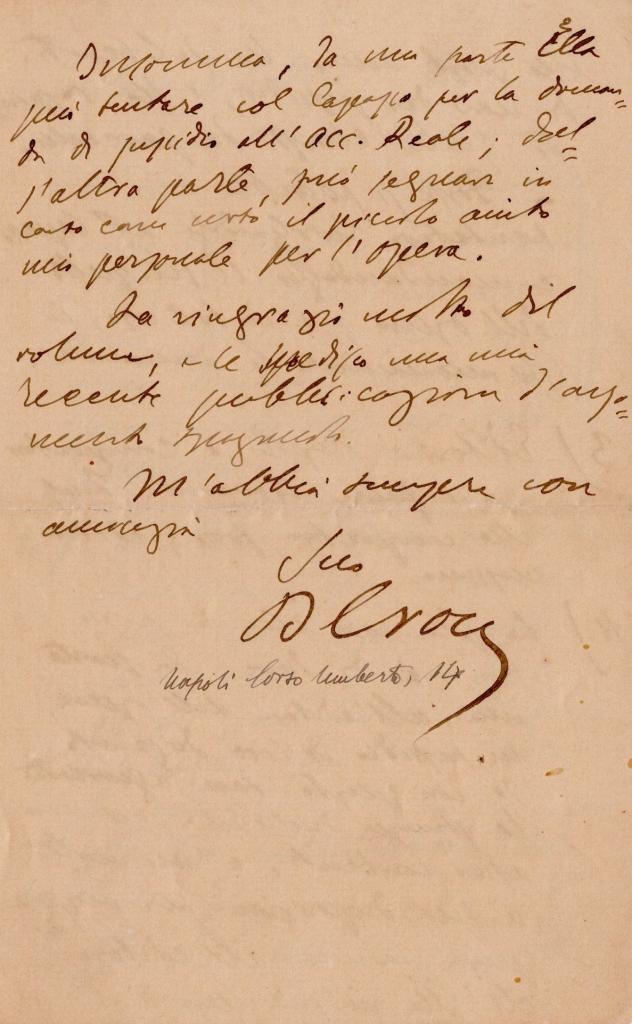 Insomma, da una parte Ella
può tentare col Capasso per la doman=
da di sussidio all'Acc. Reale; dal=
l'altra parte, può segnare in
caso come certo il piccolo aiuto
mio personale per l'opera.
La ringrazio molto del
volume, e le spedisco una mia
recente pubblicazione d'argo=
mento spagnuolo.
M'abbia sempre con
amicizia
Suo
B Croce
Napoli Corso Umberto, 14